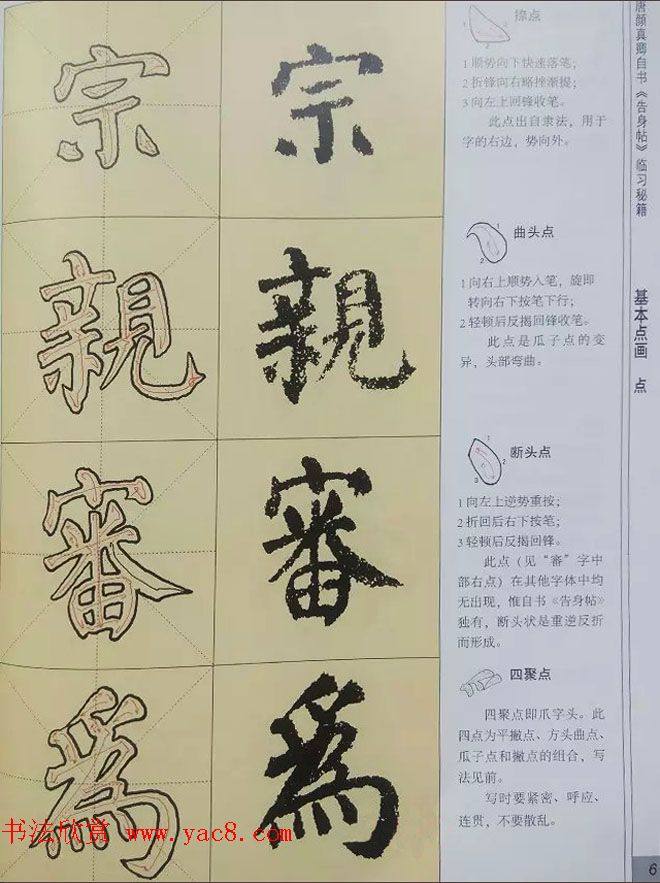 宗
親
審
爲
捺点
1 顺势向下快速落笔；
2 折锋向右略挫渐提；
3 向左上回锋收笔。
此点出自隶法，用于
字的右边，势向外。
曲头点
1 向右上顺势入笔，旋即
转向右下按笔下行；
2 轻顿后反揭回锋收笔。
此点是瓜子点的变
异，头部弯曲。
断头点
1 向左上逆势重按；
2 折回后右下按笔；
3 轻顿后反揭回锋。
此点（见“審”字中
部右点）在其他字体中均
无出现，惟自书《告身帖》
独有，断头状是重逆反折
而形成。
四聚点
四聚点即爪字头。此
四点为平撇点、方头曲点、
瓜子点和撇点的组合，写
法见前。
写时要紧密、呼应、
连贯，不要散乱。
唐颜真卿自书《告身帖》临习秘籍
基本点画 点
6
书法欣赏 www.yac8.com